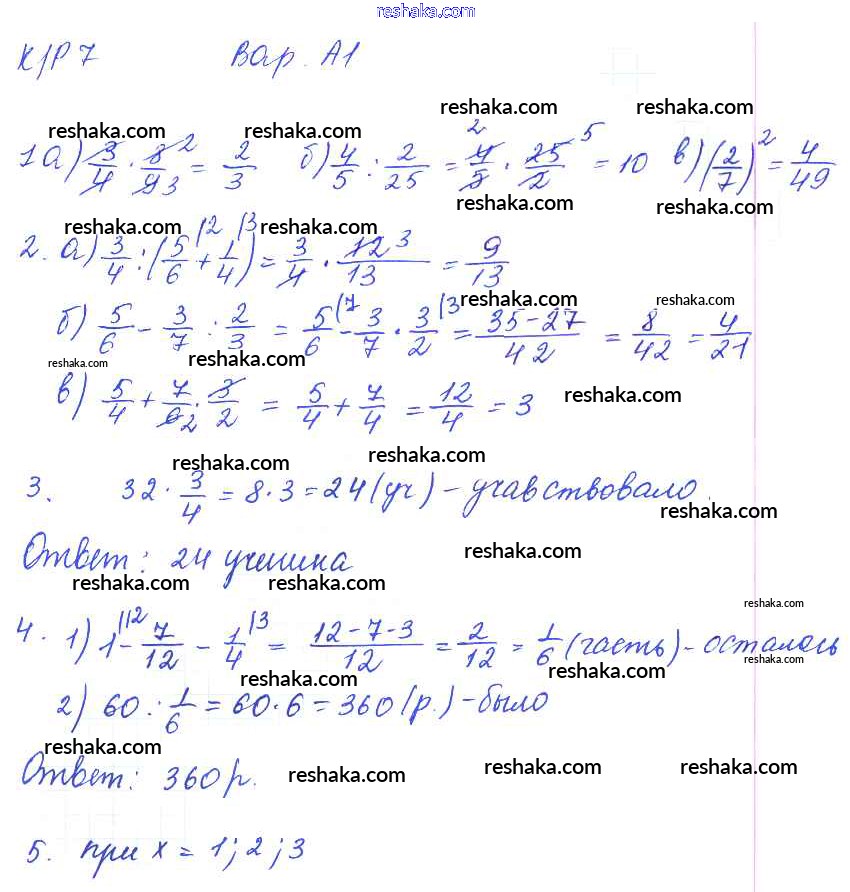 reshaka.com
К/Р 7 Вар. А1
reshaka.com reshaka.com reshaka.com reshaka.com
1 а) 3/4 · 8/9 = 2/3 б) 4/5 : 2/25 = 4/5 · 25/2 = 10 в) (2/7)² = 4/49
reshaka.com reshaka.com
reshaka.com reshaka.com
2. а) 3/4 : (5/6 + 1/4) = 3/4 · 12/13 = 9/13
reshaka.com reshaka.com
б) 5/6 - 3/7 : 2/3 = 5/6 - 3/7 · 3/2 = 35-27/42 = 8/42 = 4/21
reshaka.com
в) 5/4 + 7/6 · 3/2 = 5/4 + 7/4 = 12/4 = 3
reshaka.com
reshaka.com reshaka.com
3. 32 · 3/4 = 8·3 = 24 (уч) - учавствовало.
reshaka.com
Ответ: 24 ученика
reshaka.com
reshaka.com reshaka.com
reshaka.com
4. 1) 1 - 7/12 - 1/4 = 12-7-3/12 = 2/12 = 1/6 (часть) - осталось
reshaka.com reshaka.com reshaka.com
2) 60 : 1/6 = 60·6 = 360 (р.) - было
reshaka.com
Ответ: 360 р.
reshaka.com reshaka.com reshaka.com
5. при x = 1; 2; 3